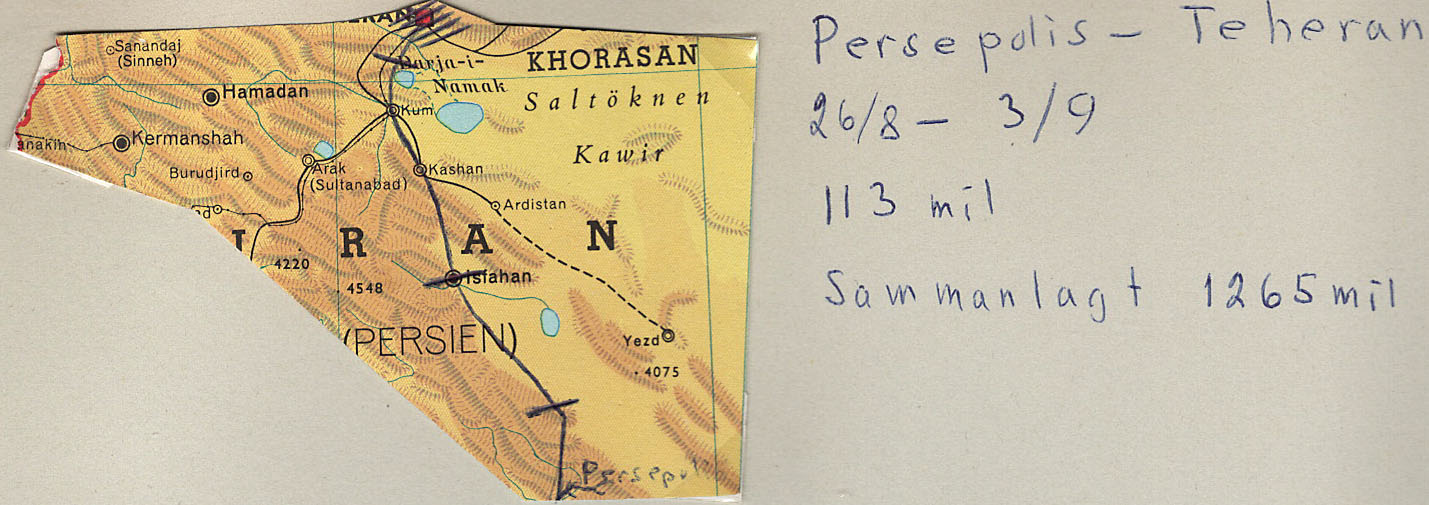 ERAN
Sanandaj
(Sinneh)
Hamadan
Kermanshah
anakin
Burudjird
Arak
(Sultanabad)
Darja-i-
Namak
Kum
Kashan
KHORASAN
Saltöknen
Kawir
Ardistan
I R A N
4220
4548
Isfahan
(PERSIEN)
Yezd
4075
Persepol
Persepolis - Teheran
26/8 - 3/9
113 mil
Sammanlagt 1265 mil